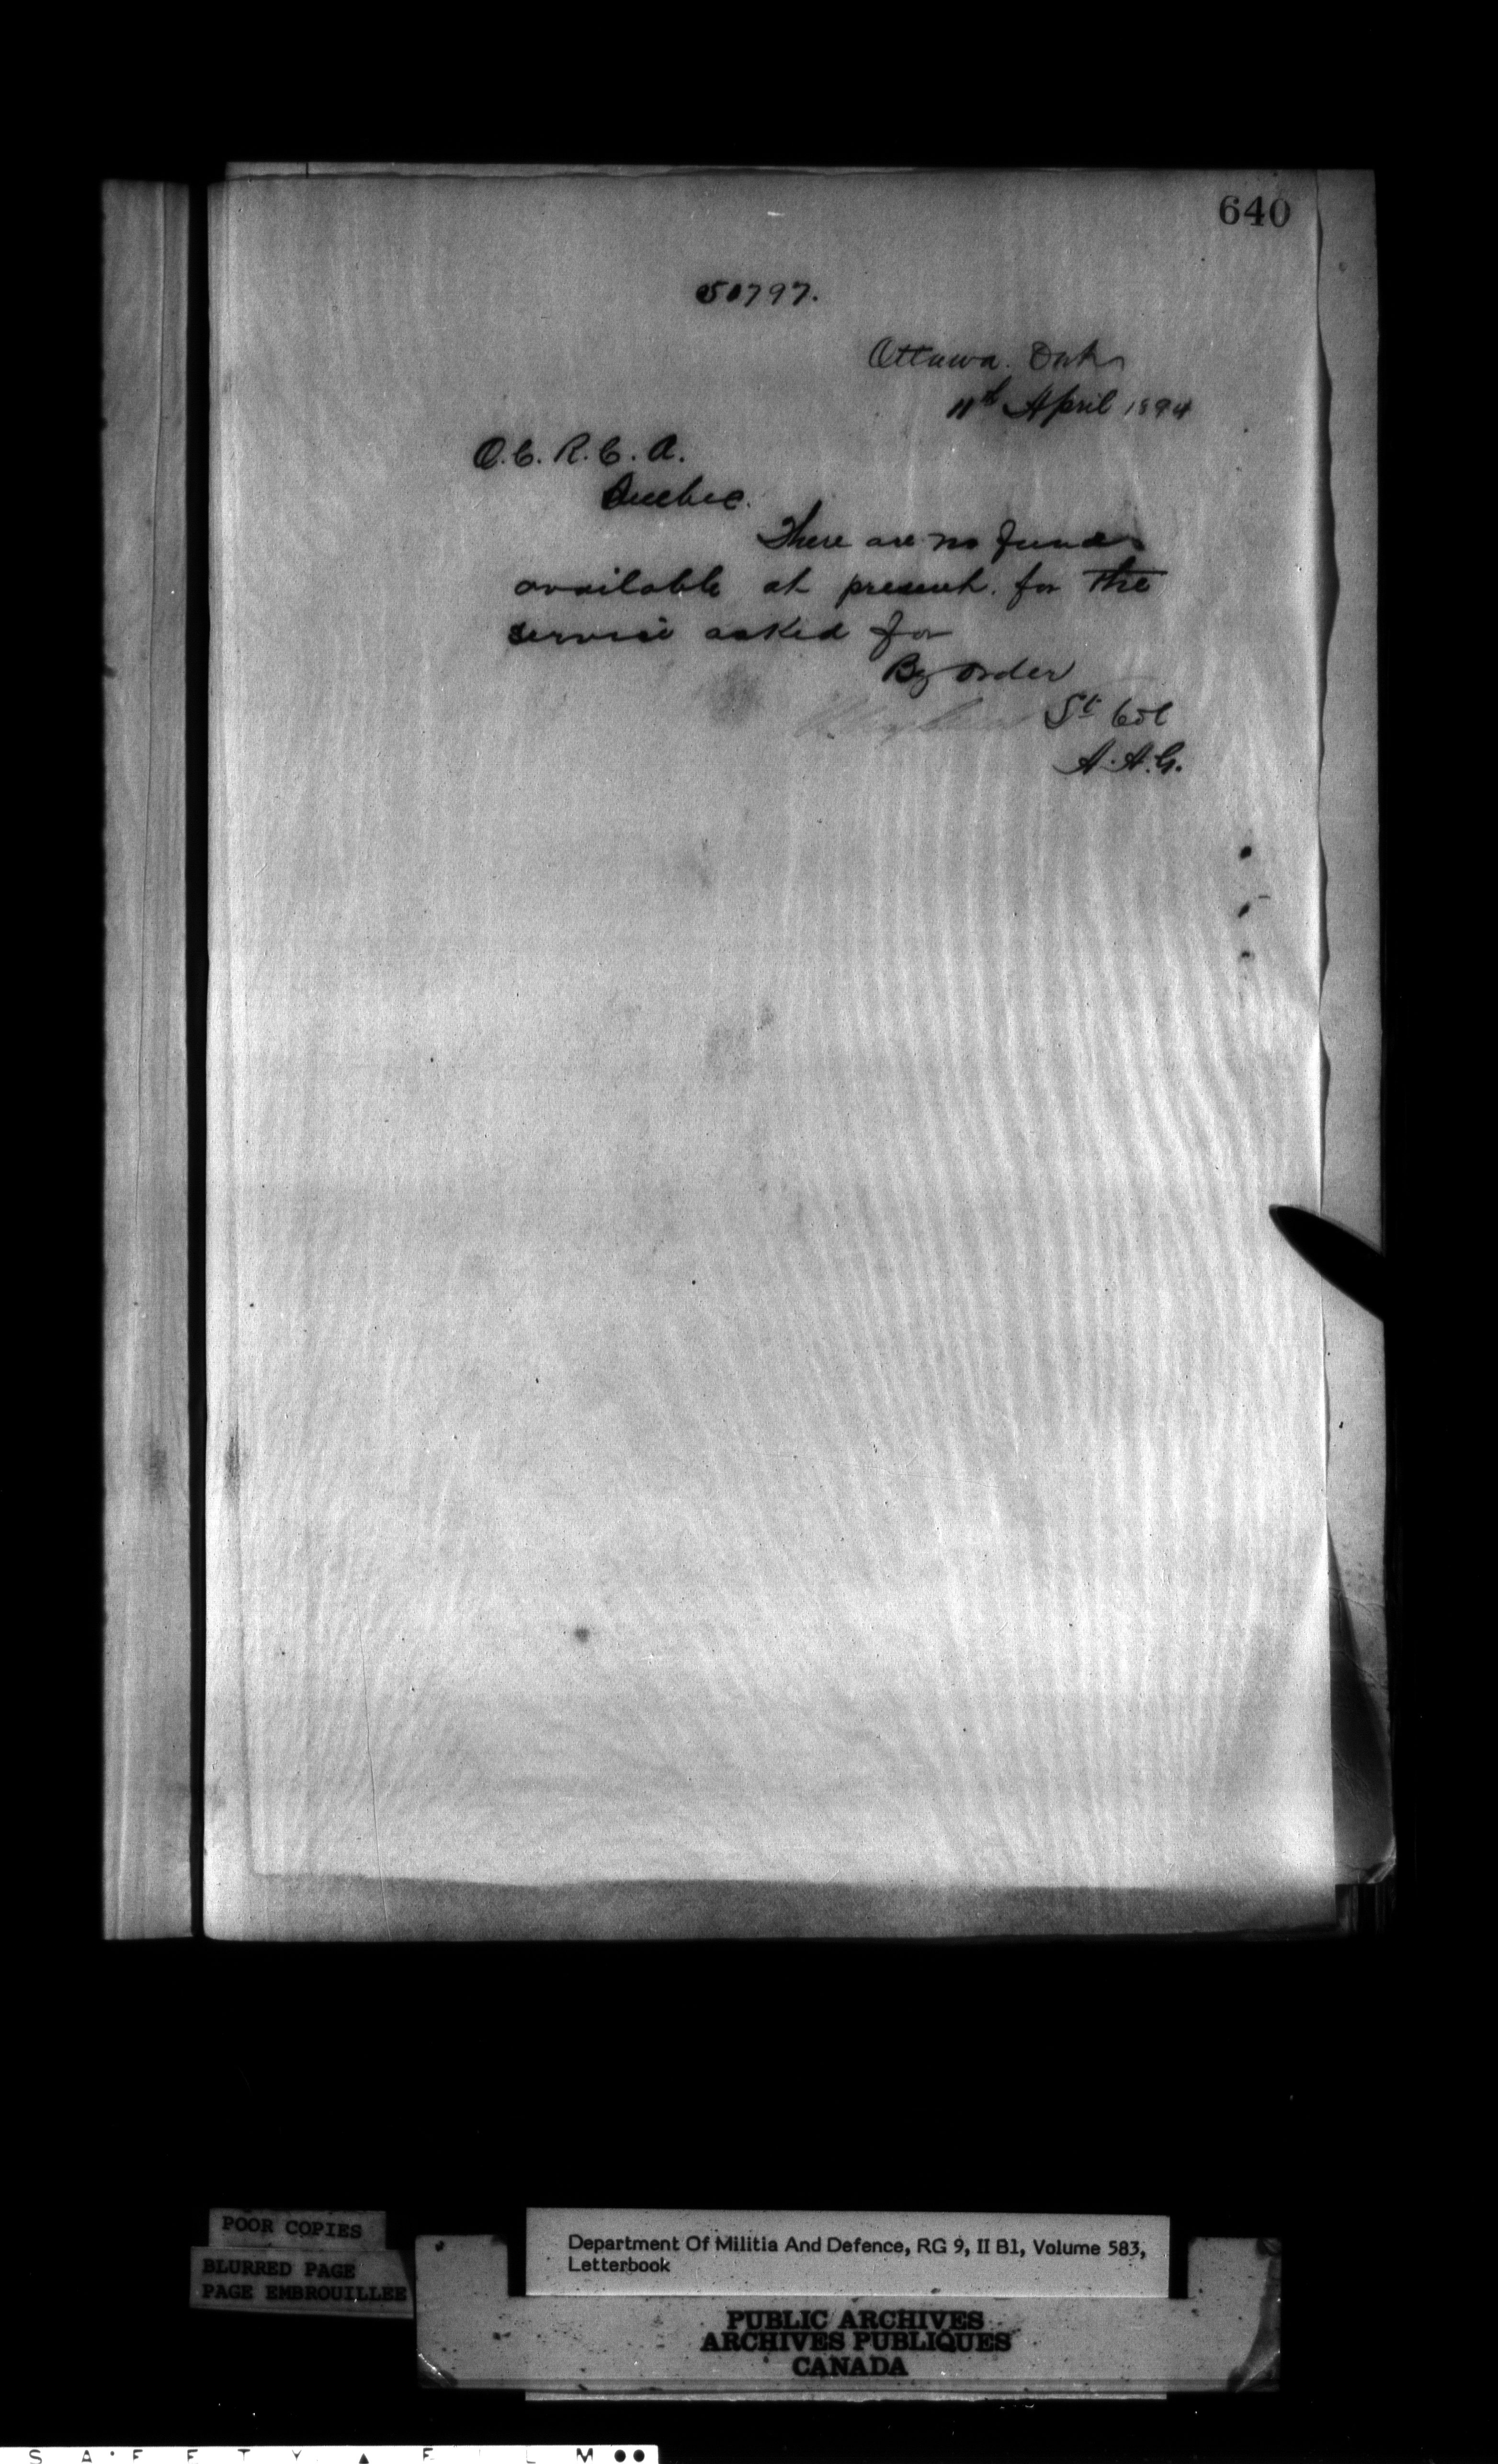 640
50797.
Ottawa. Ont
11th April 1894
O.C. R.C.A.
Quebec.
There are no funds
available at present. for the
service asked for
By order
Lt Col
A.A.G.
POOR COPIES
BLURRED PAGE
PAGE EMBROUILLEE
Department Of Militia And Defence, RG 9, II B1, Volume 583,
Letterbook
PUBLIC ARCHIVES
ARCHIVES PUBLIQUES
CANADA
SAFETY ▲ FILM ●●